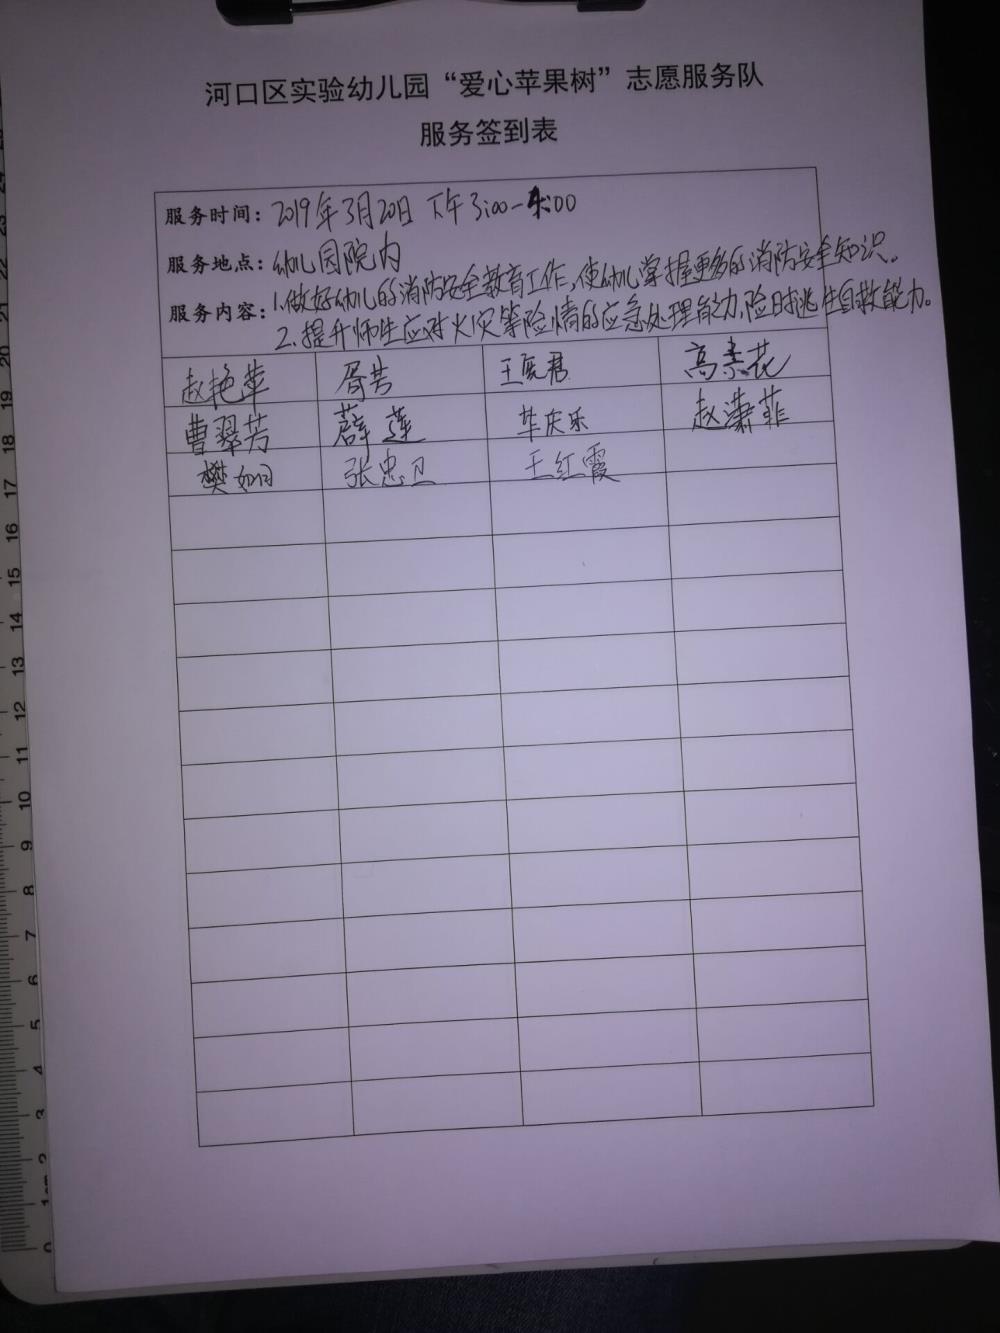 河口区实验幼儿园“爱心苹果树”志愿服务队
服务签到表
服务时间：2019年3月20日 下午3:00-4:00
服务地点：幼儿园院内
服务内容：1.做好幼儿的消防安全教育工作，使幼儿掌握更多的消防安全知识。
2.提升师生应对火灾等险情的应急处理能力，险时逃生自救能力。
赵艳苹 胥芸 高素花
曹翠芳 薛莲 车庆乐 赵潇菲
樊如 张忠卫 王红霞
20
19
18
17
16
15
14
13
12
11
10
9
8
7
6
5
4
3
2
1cm
0